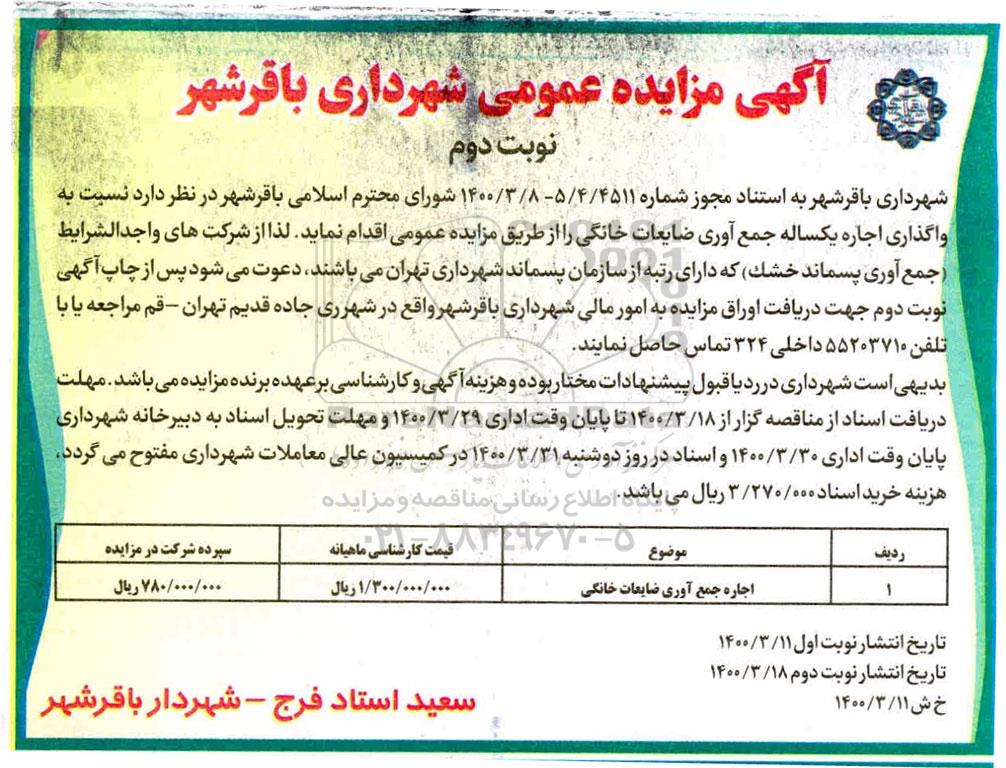 آگهی مزایده عمومی شهرداری باقرشهر
نوبت دوم
شهرداری باقرشهر به استناد مجوز شماره ۵/۴/۴۵۱۱- ۱۴۰۰/۳/۸ شورای محترم اسلامی باقرشهر در نظر دارد نسبت به
واگذاری اجاره یکساله جمع آوری ضایعات خانگی را از طریق مزایده عمومی اقدام نماید. لذا از شرکت های واجدالشرایط
(جمع آوری پسماند خشك) که دارای رتبه از سازمان پسماند شهرداری تهران می باشند، دعوت می شود پس از چاپ آگهی
نوبت دوم جهت دریافت اوراق مزایده به امور مالی شهرداری باقرشهر واقع در شهرری جاده قدیم تهران -قم مراجعه یا با
تلفن ۵۵۲۰۳۷۱۰ داخلی ۳۲۴ تماس حاصل نمایند.
بدیهی است شهرداری در رد یا قبول پیشنهادات مختار بوده و هزینه آگهی و کارشناسی بر عهده برنده مزایده می باشد. مهلت
دریافت اسناد از مناقصه گزار از ۱۴۰۰/۳/۱۸ تا پایان وقت اداری ۱۴۰۰/۳/۲۹ و مهلت تحویل اسناد به دبیرخانه شهرداری
پایان وقت اداری ۱۴۰۰/۳/۳۰ و اسناد در روز دوشنبه ۱۴۰۰/۳/۳۱ در کمیسیون عالی معاملات شهرداری مفتوح می گردد،
هزینه خرید اسناد ۳/۲۷۰/۰۰۰ ریال می باشد.
پایگاه اطلاع رسانی مناقصه و مزایده
۰۲۱-۸۸۳۴۹۶۷۰-۵
ردیف موضوع قیمت کارشناسی ماهیانه سپرده شرکت در مزایده
۱ اجاره جمع آوری ضایعات خانگی ۱/۳۰۰/۰۰۰/۰۰۰ ریال ۷۸۰/۰۰۰/۰۰۰ ریال
تاریخ انتشار نوبت اول ۱۴۰۰/۳/۱۱
تاریخ انتشار نوبت دوم ۱۴۰۰/۳/۱۸
خ ش ۱۴۰۰/۳/۱۱
سعید استاد فرج - شهردار باقرشهر